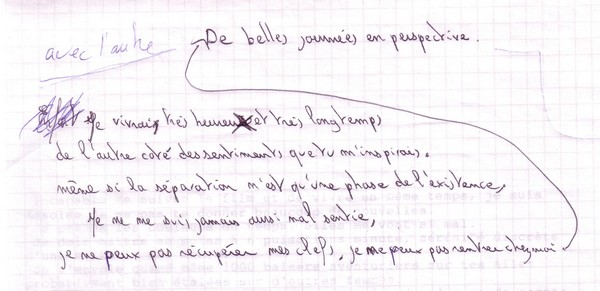 avec l'autre
De belles journées en perspective.
Je vivrais très heureux et très longtemps
de l'autre coté des sentiments que tu m'inspirais.
même si la séparation n'est qu'une phase de l'existence,
Je ne me suis jamais aussi mal sentie,
je ne peux pas récupérer mes clefs, je ne peux pas rentrer chez moi.